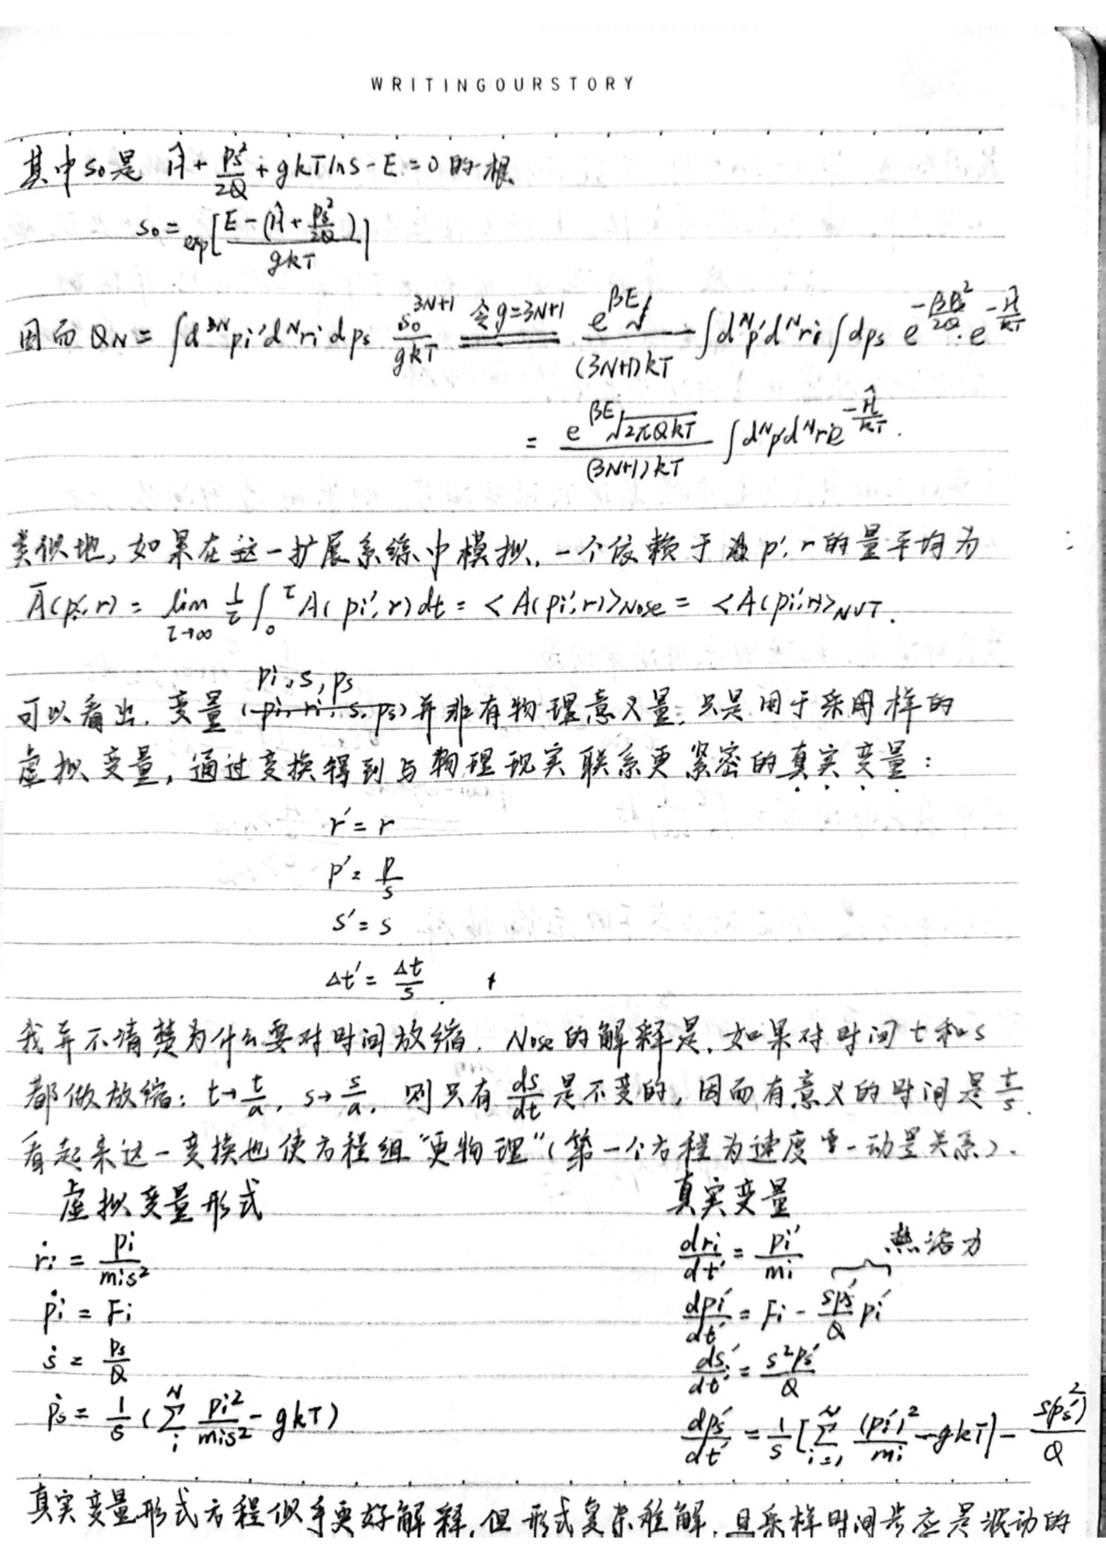 WRITINGOURSTORY
其中s₀是 Ĥ + ps²/2Q + gkTlns - E = 0 的根
s₀ = exp[(E - (Ĥ + ps²/2Q))/gkT]
因而 Q_N = ∫d³ᴺpi'dᴺri dps s₀³ᴺ⁺¹/gkT ══(令g=3N+1)══ e^{βE}√/(3N+1)kT ∫dᴺp'dᴺri ∫dps e^{-βps²/2Q}·e^{-Ĥ/kT}
= e^{βE}√(2πQkT)/(3N+1)kT ∫dᴺp'dᴺri e^{-Ĥ/kT}.
类似地, 如果在这一扩展系综中模拟, 一个依赖于 p', r的量平均为
Ā(pi', r) = lim_{τ→∞} 1/τ ∫₀^τ A(pi', r)dt = <A(pi', r)>Nose = <A(pi', r)>NVT.
pi, s, ps
可以看出, 变量 (pi, ri, s, ps) 并非有物理意义量, 只是用于采用样的
虚拟变量, 通过变换得到与物理现实联系更紧密的真实变量:
r' = r
p' = p/s
s' = s
Δt' = Δt/s.
我并不清楚为什么要对时间放缩. Nose的解释是, 如果对时间t和s
都做放缩: t→t/a, s→s/a, 则只有ds/dt是不变的, 因而有意义的时间是t/s.
看起来这一变换也使方程组“更物理”(第一个方程为速度-动量关系).
虚拟变量形式 真实变量
ṙi = pi/mis² dri/dt' = pi'/mi 热浴力
ṗi = Fi dpi'/dt' = Fi - sps'/Q pi'
ṡ = ps/Q ds'/dt' = s²ps'/Q
ṗs = 1/s (Σᵢᴺ pi²/mis² - gkT) dps'/dt' = 1/s [Σᵢ₌₁ᴺ (pi')²/mi - gkT] - s(ps')²/Q
真实变量形式方程似乎更好解释, 但形式复杂难解, 且采样时间步应是波动的